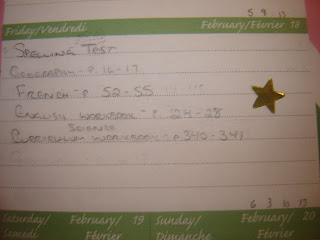 5 9 13
Friday/Vendredi February/Février 18
SPELLING TEST
GEOGRAPHY - P. 16-17
FRENCH - P 52-55
ENGLISH WORKBOOK - P. 24-28
SCIENCE
CURRICULUM WORKBOOK - P. 340-349
6 3 10 13
Saturday/ February/ 19 Sunday/ February/ 20
Samedi Février Dimanche Février